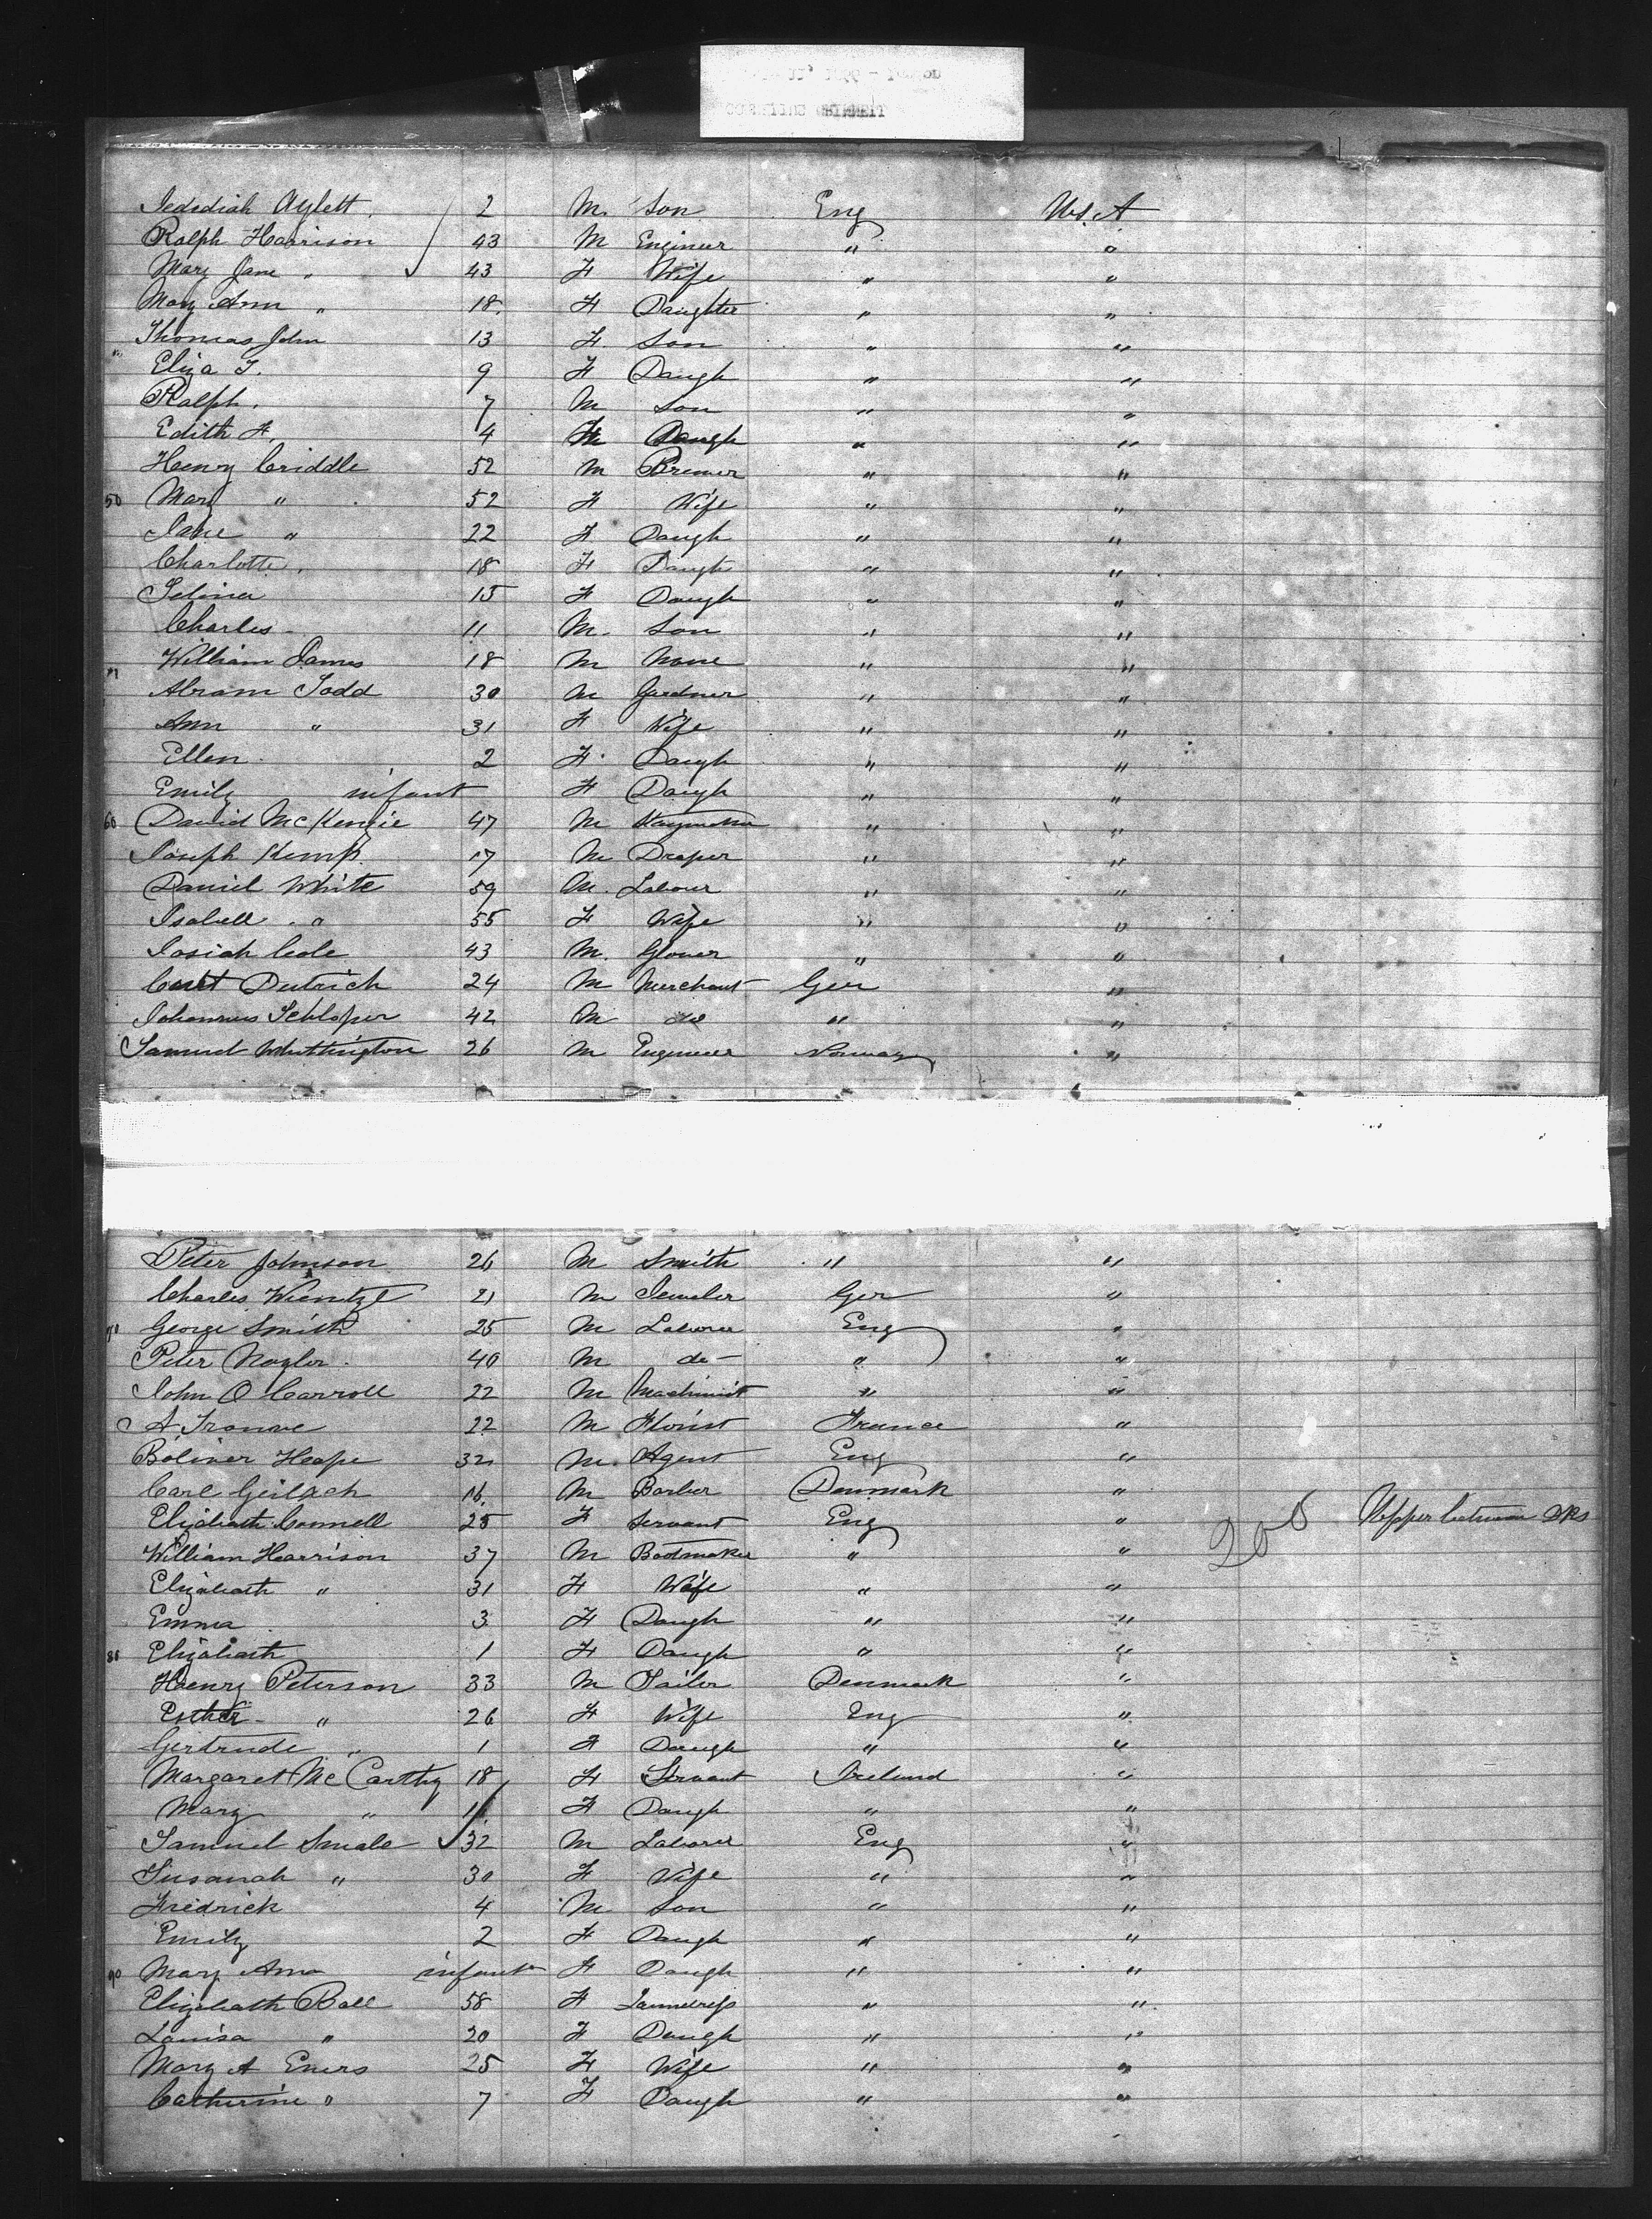 Jedediah Aylett. 2 M. Son Eng U.S.A
Ralph Harrison 43 M Engineer " "
Mary Jane " 43 F Wife " "
Mary Ann " 18. F Daughter " "
Thomas John 13 F. Son " "
Eliza J. 9 F Daugh " "
Ralph. 7 M Son " "
Edith F. 4 F Daugh " "
Henry Criddle 52 M Bremer " "
50 Mary " 52 F Wife " "
Jane " 22 F Daugh " "
Charlotte. 18 F Daugh " "
Selina 15 F Daugh " "
Charles 11 M. Son " "
William James 18 M None " "
Abram Todd 30 M Gardner " "
Ann " 31 F Wife " "
Ellen 2 F Daugh " "
Emily infant F Daugh " "
60 David McKenzie 47 M " "
Joseph Kemp. 17 M Draper " "
Daniel White 59 M. Labour " "
Isabell " 55 F Wife " "
Josiah Cole 43 M. Glover " "
Curt Dutrich 24 M Merchant Ger "
Johannes Schloper 42 M do " "
Samuel Whittington 26 M Engineer Norway "
Peter Johnson 26 M Smith " "
Charles Wientzl 21 M Jeweler Ger "
70 George Smith 25 M Laborer Eng "
Peter Naylor. 40 M do " "
John O Carroll 22 M Machinist " "
A 22 M Florist France "
Boliver Heape 32 M. Agent Eng "
Carl Gerlach 16. M Barber Denmark "
Elizabeath Connell 25 F Servant Eng " 200 Upper between Dks
William Harrison 37 M Bootmaker " "
Elizabeath " 31 F Wife " "
Emma 3 F Daugh " "
80 Elizabeath 1 F Daugh " "
Henry Peterson 33 M Tailor Denmark "
Esther " 26 F Wife Eng "
Gertrude " 1 F Daugh " "
Margaret McCarthy 18 F Servant Ireland "
Mary " 16 F Daugh " "
Samuel Smale 32 M Laborer Eng "
Susanah " 30 F Wife " "
Fredrick 4 M Son " "
Emily 2 F Daugh " "
90 Mary Ann infant F Daugh " "
Elizabeath Ball 58 F Laundress " "
Louisa " 20 F Daugh " "
Mary A Eners 25 F Wife " "
Catherine " 7 F Daugh " "